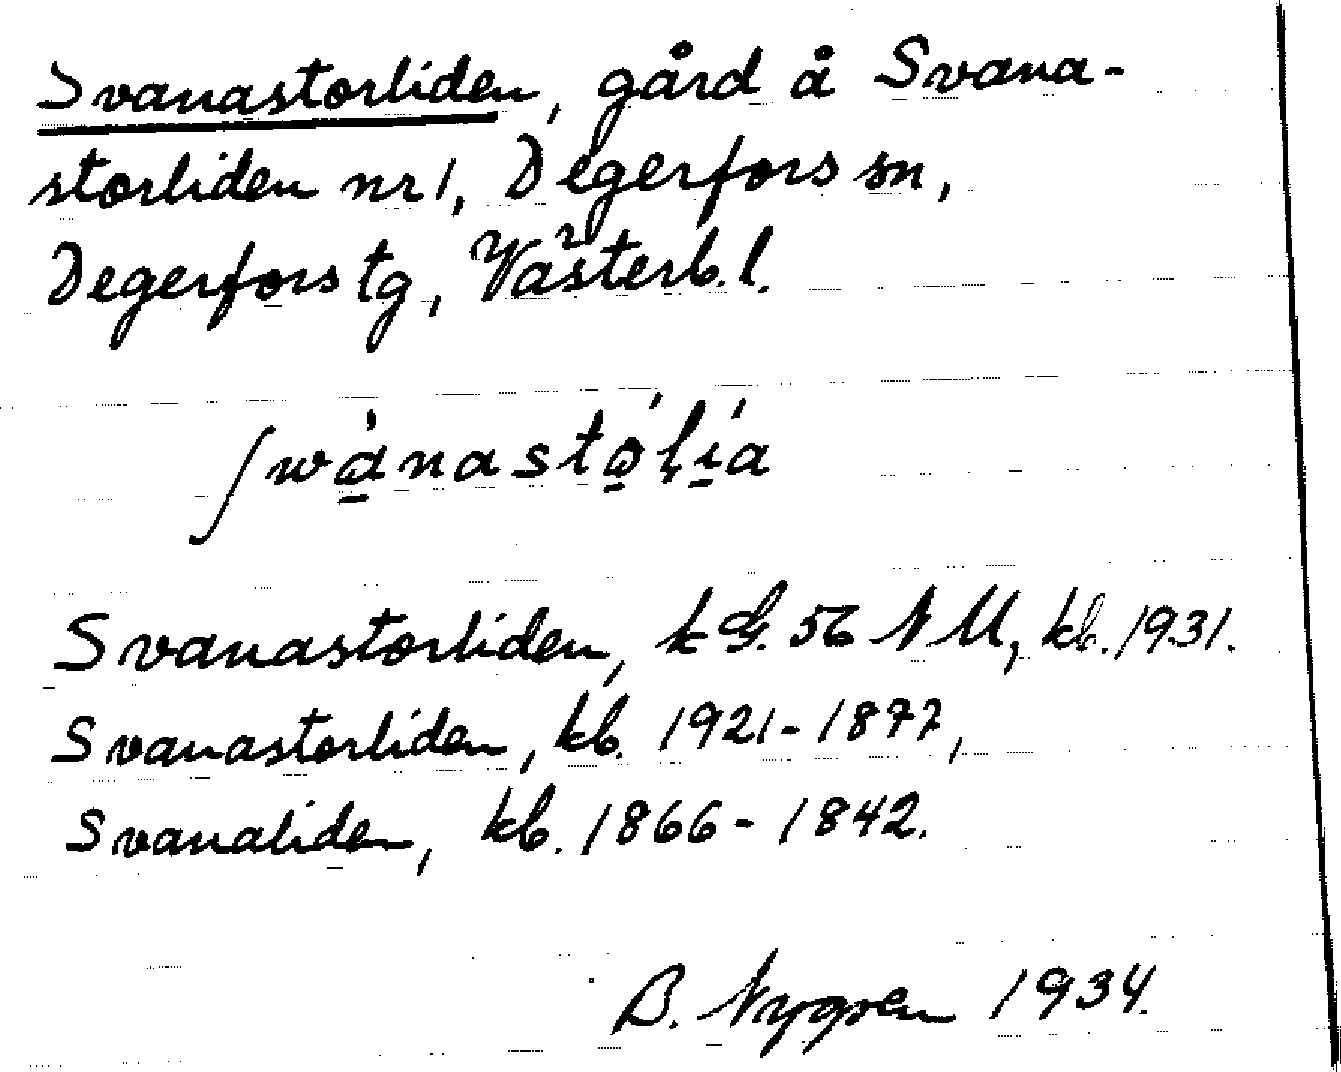 Svanastorliden, gård å Svana-
storliden nr 1, Degerfors sn,
Degerfors tg, Västerb. l.
ʃwà̱nastó̱ḷí̱a
Svanastorliden, k G. 56 N M, kb. 1931.
Svanastorliden, kb. 1921-1877,
Svanaliden, kb. 1866-1842.
B. Nygren 1934.